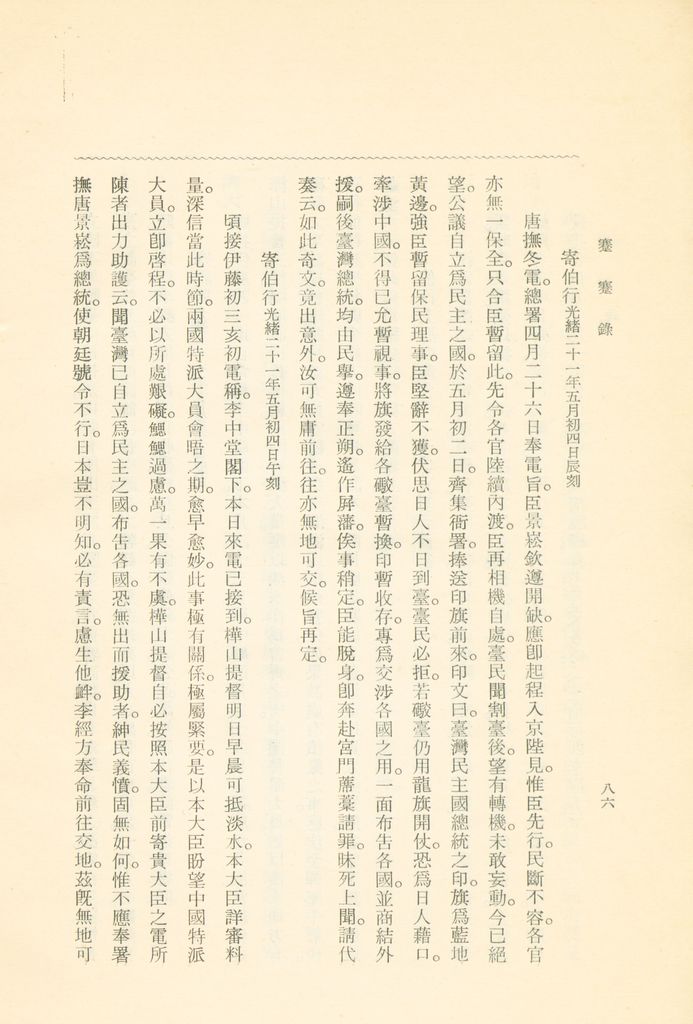 蹇蹇錄
八六
寄伯行光緒二十一年五月初四日辰刻
唐撫冬電。總署四月二十六日奉電旨。臣景崧欽遵開缺。應卽起程入京陛見。惟臣先行。民斷不容。各官
亦無一保全。只合臣暫留此。先令各官陸續內渡。臣再相機自處。臺民聞割臺後。望有轉機。未敢妄動。今已絕
望。公議自立爲民主之國。於五月初二日。齊集衙署。捧送印旗前來。印文曰。臺灣民主國總統之印。旗爲藍地
黃邊。強臣暫留保民理事。臣堅辭不獲。伏思日人不日到臺。臺民必拒。若礮臺仍用龍旗開仗。恐爲日人藉口。
牽涉中國。不得已允暫視事。將旗發給各礮臺暫換。印暫收存。專爲交涉各國之用。一面布吿各國。並商結外
援。嗣後臺灣總統。均由民舉。遵奉正朔。遙作屛藩。俟事稍定。臣能脫身。卽奔赴宮門。蓆藁請罪。昧死上聞。請代
奏云。如此奇文。竟出意外。汝可無庸前往。往亦無地可交。候旨再定。
寄伯行光緒二十一年五月初四日午刻
頃接伊藤初三亥初電稱。李中堂閣下。本日來電已接到。樺山提督明日早晨可抵淡水。本大臣詳審料
量。深信當此時節。兩國特派大員會晤之期。愈早愈妙。此事極有關係。極屬緊要。是以本大臣盼望中國特派
大員。立卽啓程。不必以所處艱礙。鰓鰓過慮。萬一果有不虞。樺山提督自必按照本大臣前寄貴大臣之電所
陳者出力助護云。聞臺灣已自立爲民主之國。布吿各國。恐無出而援助者。紳民義憤。固無如何。惟不應奉署
撫唐景崧爲總統。使朝廷號令不行。日本豈不明知。必有責言。慮生他衅。李經方奉命前往交地。茲旣無地可